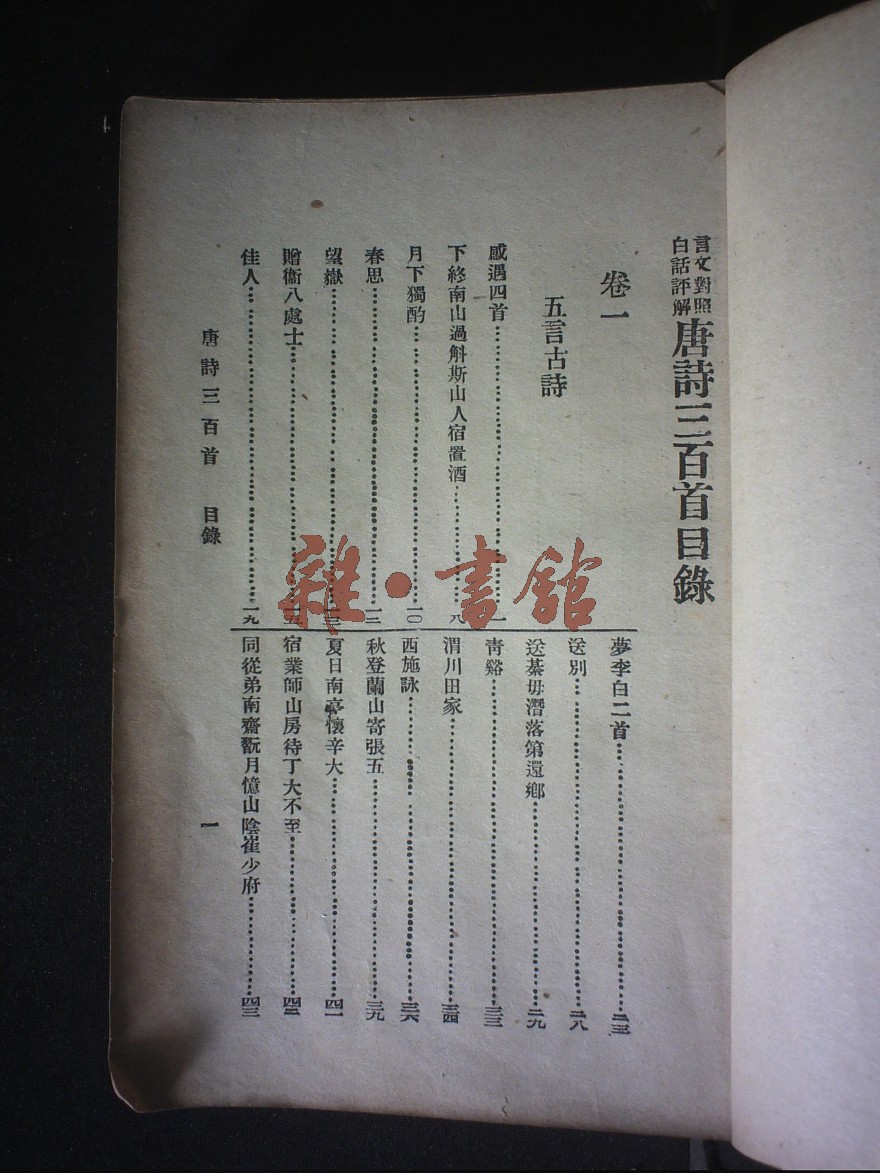 言文對照
白話評解
唐詩三百首目錄
卷一
五言古詩
感遇四首…一
下終南山過斛斯山人宿置酒…八
月下獨酌…一〇
春思…一二
望嶽…一三
贈衞八處士…一五
佳人…一九
夢李白二首…二三
送別…二八
送綦毋潛落第還鄉…二九
青谿…三三
渭川田家…三四
西施詠…三六
秋登蘭山寄張五…三九
夏日南亭懷辛大…四一
宿業師山房待丁大不至…四二
同從弟南齋翫月憶山陰崔少府…四三
唐詩三百首 目錄
一
雜·書館